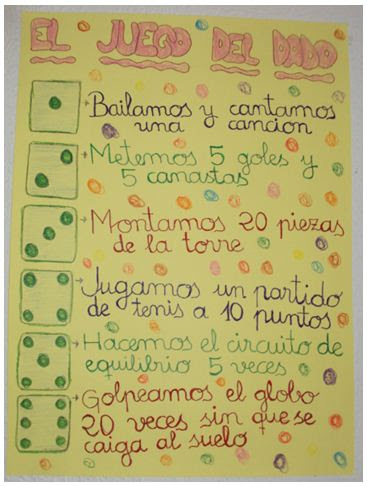 EL JUEGO DEL DADO
Bailamos y cantamos
una cancion
Metemos 5 goles y
5 canastas
Montamos 20 piezas
de la torre
Jugamos un partido
de tenis a 10 puntos
Hacemos el circuito de
equilibrio 5 veces
Golpeamos el globo
20 veces sin que se
caiga al suelo